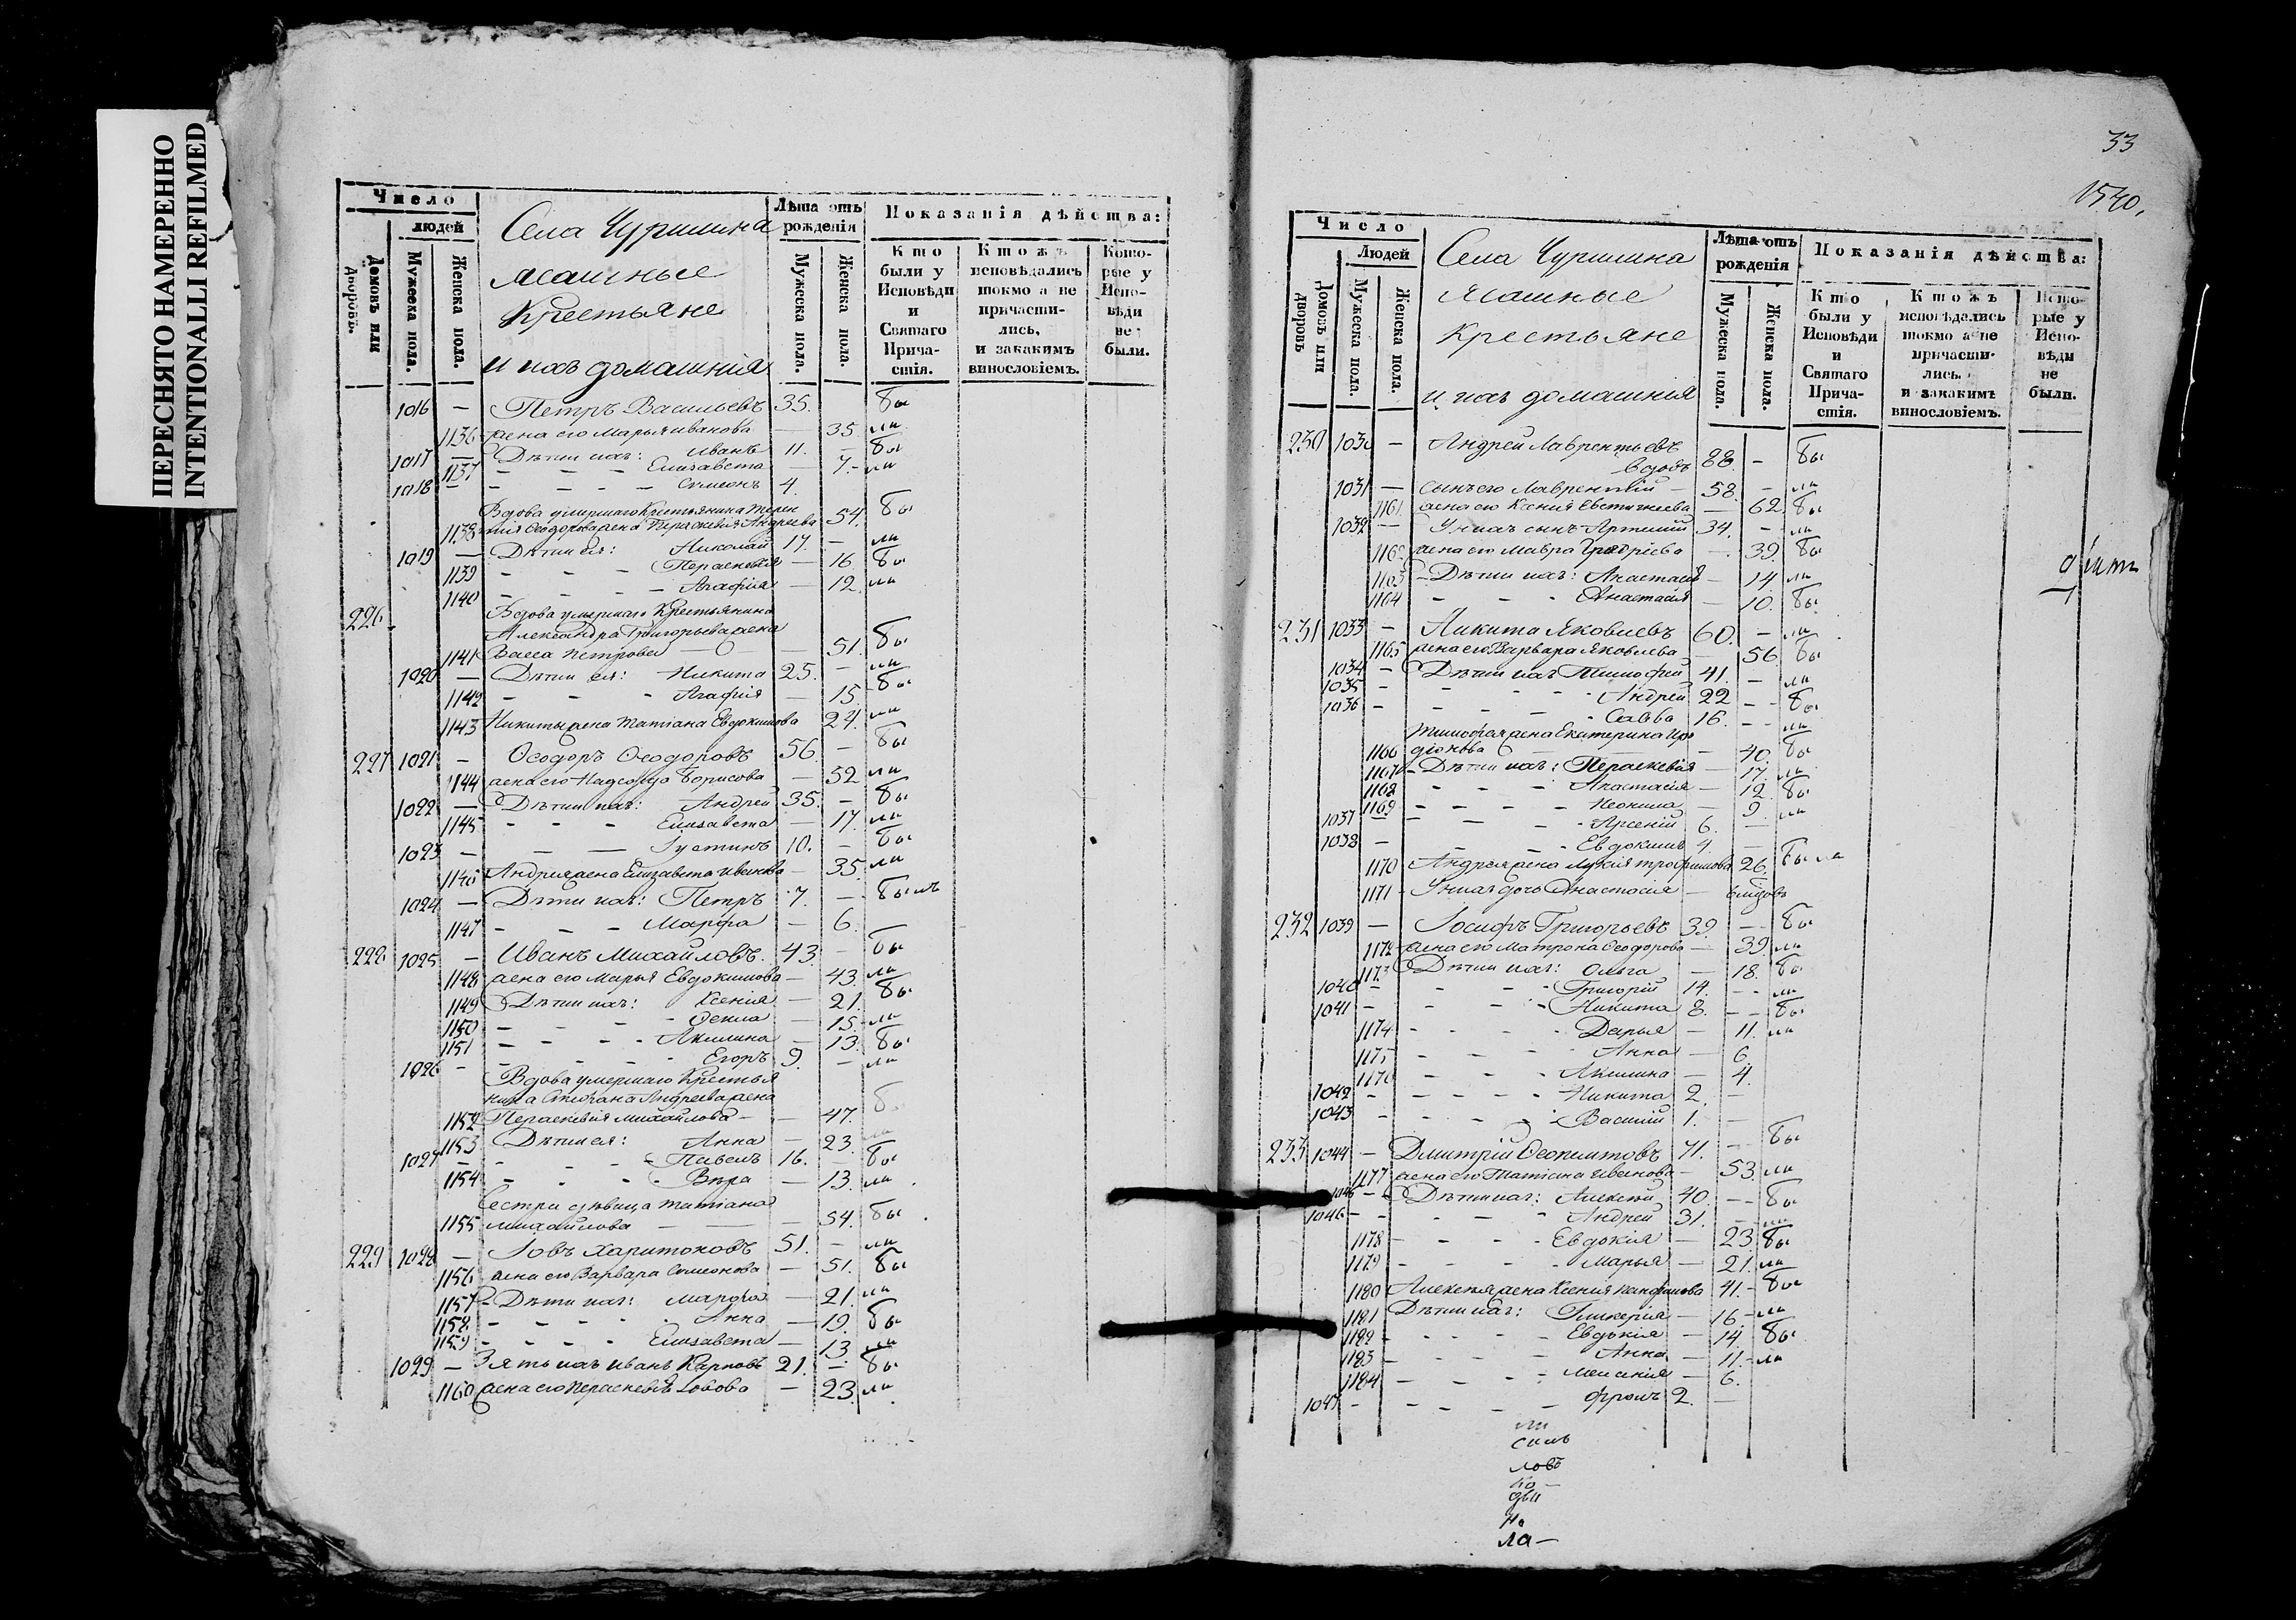 ПЕРЕСНЯТО НАМЕРЕННО
INTENTIONALLI REFILMED
Число
людей
Домовъ или дворовъ.
Мужеска пола.
Женска пола.
Села Чурилина
ясашные
Крестьяне
и ихъ домашнія
Лѣта отъ рожденія
Мужеска пола.
Женска пола.
Показанія дѣйства:
Кто были у Исповѣди и Святаго Причастія.
Ктожъ исповѣдались токмо а не причастились, и закакимъ винословіемъ.
Которые у Исповѣди не были.
1016 — Петръ Васильевъ 35. бы
1136 жена его Марья иванова — 35 ли
1017 — Дѣти ихъ: Иванъ 11. — бы
1137 - - - Елизавета — 7. - ли
1018 - - - Симеонъ 4.
Вдова умершаго Крестьянина терен
1138 тія Ѳеодорова жена Параскевія Андреева 54. бы
1019 — Дѣти ея: Николай 17. — ли
1139 - - - Параскевія — 16 бы
1140 - - - Агафія — 12. ли
226. Вдова умершаго Крестьянина
Александра Григорьева жена
1141 Васса петрова — 51. бы
1020 — Дѣти ея: Никита 25. — ли
1142 - - - Агафія — 15 бы
1143 Никиты жена татіана Евдокимова 24. ли
227 1021 — Ѳеодоръ Ѳеодоровъ 56. — бы
1144 жена его Надежда Борисова — 52 ли
1022 — Дѣти ихъ: Андрей 35. — бы
1145 - - - Елизавета — 17. ли
1023 — — Густинъ 10. — бы
1146 Андрея жена Елизавета иванова — 35. ли
1024 — Дѣти ихъ: Петръ 7. — былъ
1147 - - - Марфа — 6.
228 1025 — Иванъ Михайловъ. 43. — бы
1148 жена его Марья Евдокимова — 43. ли
1149 Дѣти ихъ: Ксенія — 21. бы
1150 - - - Ѳекла — 15. ли
1151 - - - Акилина — 13. бы
1026 - - - Егоръ 9. — ли
Вдова умершаго Крестья
нина Стефана Андреева жена
1152 Параскевія михайлова — 47. б
1153 Дѣти ея: Анна — 23. ли
1027 - - - Павелъ 16. — бы
1154 - - - Вѣра — 13. ли
Сестра дѣвица татіана
1155 михайлова — 54. бы
229 1028 — Іовъ Харитоновъ 51. — ли
1156 жена его Варвара Симеонова — 51. бы
1157 - Дѣти ихъ: марфа — 21. ли
1158. - - - Анна — 19. бы
1159 - - - Елизавета — 13. ли
1029 — Зять ихъ иванъ Карповъ 21. — бы
1160 жена его Параскевія Іовова — 23. ли
33
1540.
Число
Людей
Домовъ или дворовъ
Мужеска пола.
Женска пола.
Села Чурилина
Ясашные
Крестьяне
и ихъ домашнія
Лѣта отъ рожденія
Мужеска пола.
Женска пола.
Показанія дѣйства:
Кто были у Исповѣди и Святаго Причастія.
Ктожъ исповѣдались токмо а не причастились. и закакимъ винословіемъ.
Которые у Исповѣди не были.
230 1030 — Андрей Лаврентьевъ
вдовъ 88. - бы
1031 — сынъ его Лаврентій — 58. - ли
1161 жена его Ксенія Евстигнеева — 62. бы
1032 — У нихъ сынъ Артемій 34. - ли
1162 жена его мавра — 39. бы
1163 - Дѣти ихъ: Анастасія — 14 ли
1164 - - - Анастасія — 10. бы
231 1033 — Никита Яковлевъ 60. - ли
1165 жена его Варвара Яковлева — 56 бы
1034 — Дѣти ихъ Тимофей 41. — ли
1035 - - - Андрей 22 - - бы
1036 - - - Савва 16. - - ли
тимофея жена Екатерина Иро
1166 діонова — 40. бы
1167 - Дѣти ихъ: Параскевія — 17. ли
1168 - - - Анастасія — 12 бы
1169 - - - Неонила — 9. ли
1037 - - - Арсеній 6. —
1038 - - - Евдокимъ 4. —
1170 Андрея жена Лукія трофимова 26. была
1171 - У нихъ дочь Анастасія —
232 1039 — Іосифъ Григорьевъ 39. - - бы
1172 жена его Матрона Ѳеодорова — 39. ли
1173 Дѣти ихъ: Ольга — 18. бы
1040 - - - Григорій 14. - - ли
1041 - - - Никита 8. - - бы
1174 - - - Дарья — 11. ли
1175 - - - Анна — 6.
1176 - - - Акилина — 4.
1042 - - - Никита 2. —
1043 - - - Василій 1. —
233 1044 — Дмитрій Ѳеоктистовъ 71. - - бы
1177 жена его Татіана иванова — 53. ли
1045 - - Дѣти ихъ: Алексѣй 40. - - бы
1046 - - - Андрей 31. — ли
1178 - - - Евдокія — 23 бы
1179 - - - Марья — 21. ли
1180 Алексѣя жена Ксенія 41. - бы
1181 Дѣти ихъ: Гликерія — 16 - ли
1182 - - - Евдокія — 14. бы
1183 - - - Анна — 11. - ли
1184 - - - меланія — 6.
1047 - - - Фролъ 2. —
ли
силъ
ловъ
ко -
ди
на
ла -